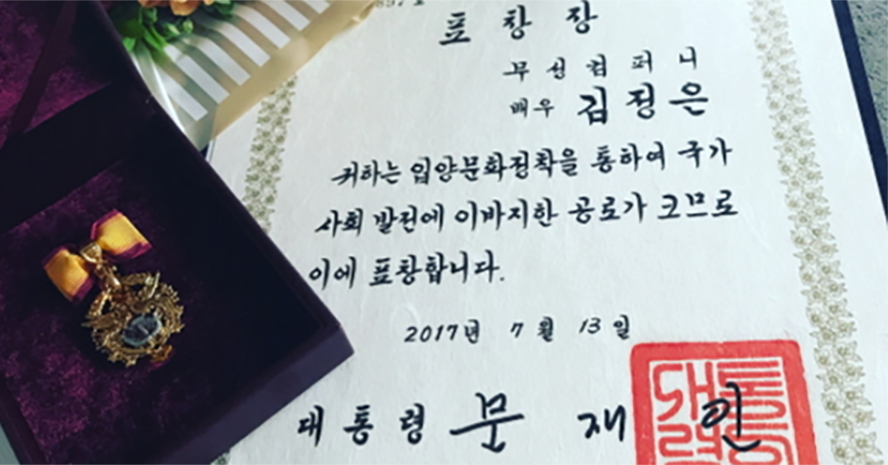 표 창 장
무 선 컴 퍼 니
배우 김 정 은
귀하는 입양문화정착을 통하여 국가
사회 발전에 이바지한 공로가 크므로
이에 표창합니다.
2017년 7 월 13 일
대 통 령 문 재 인